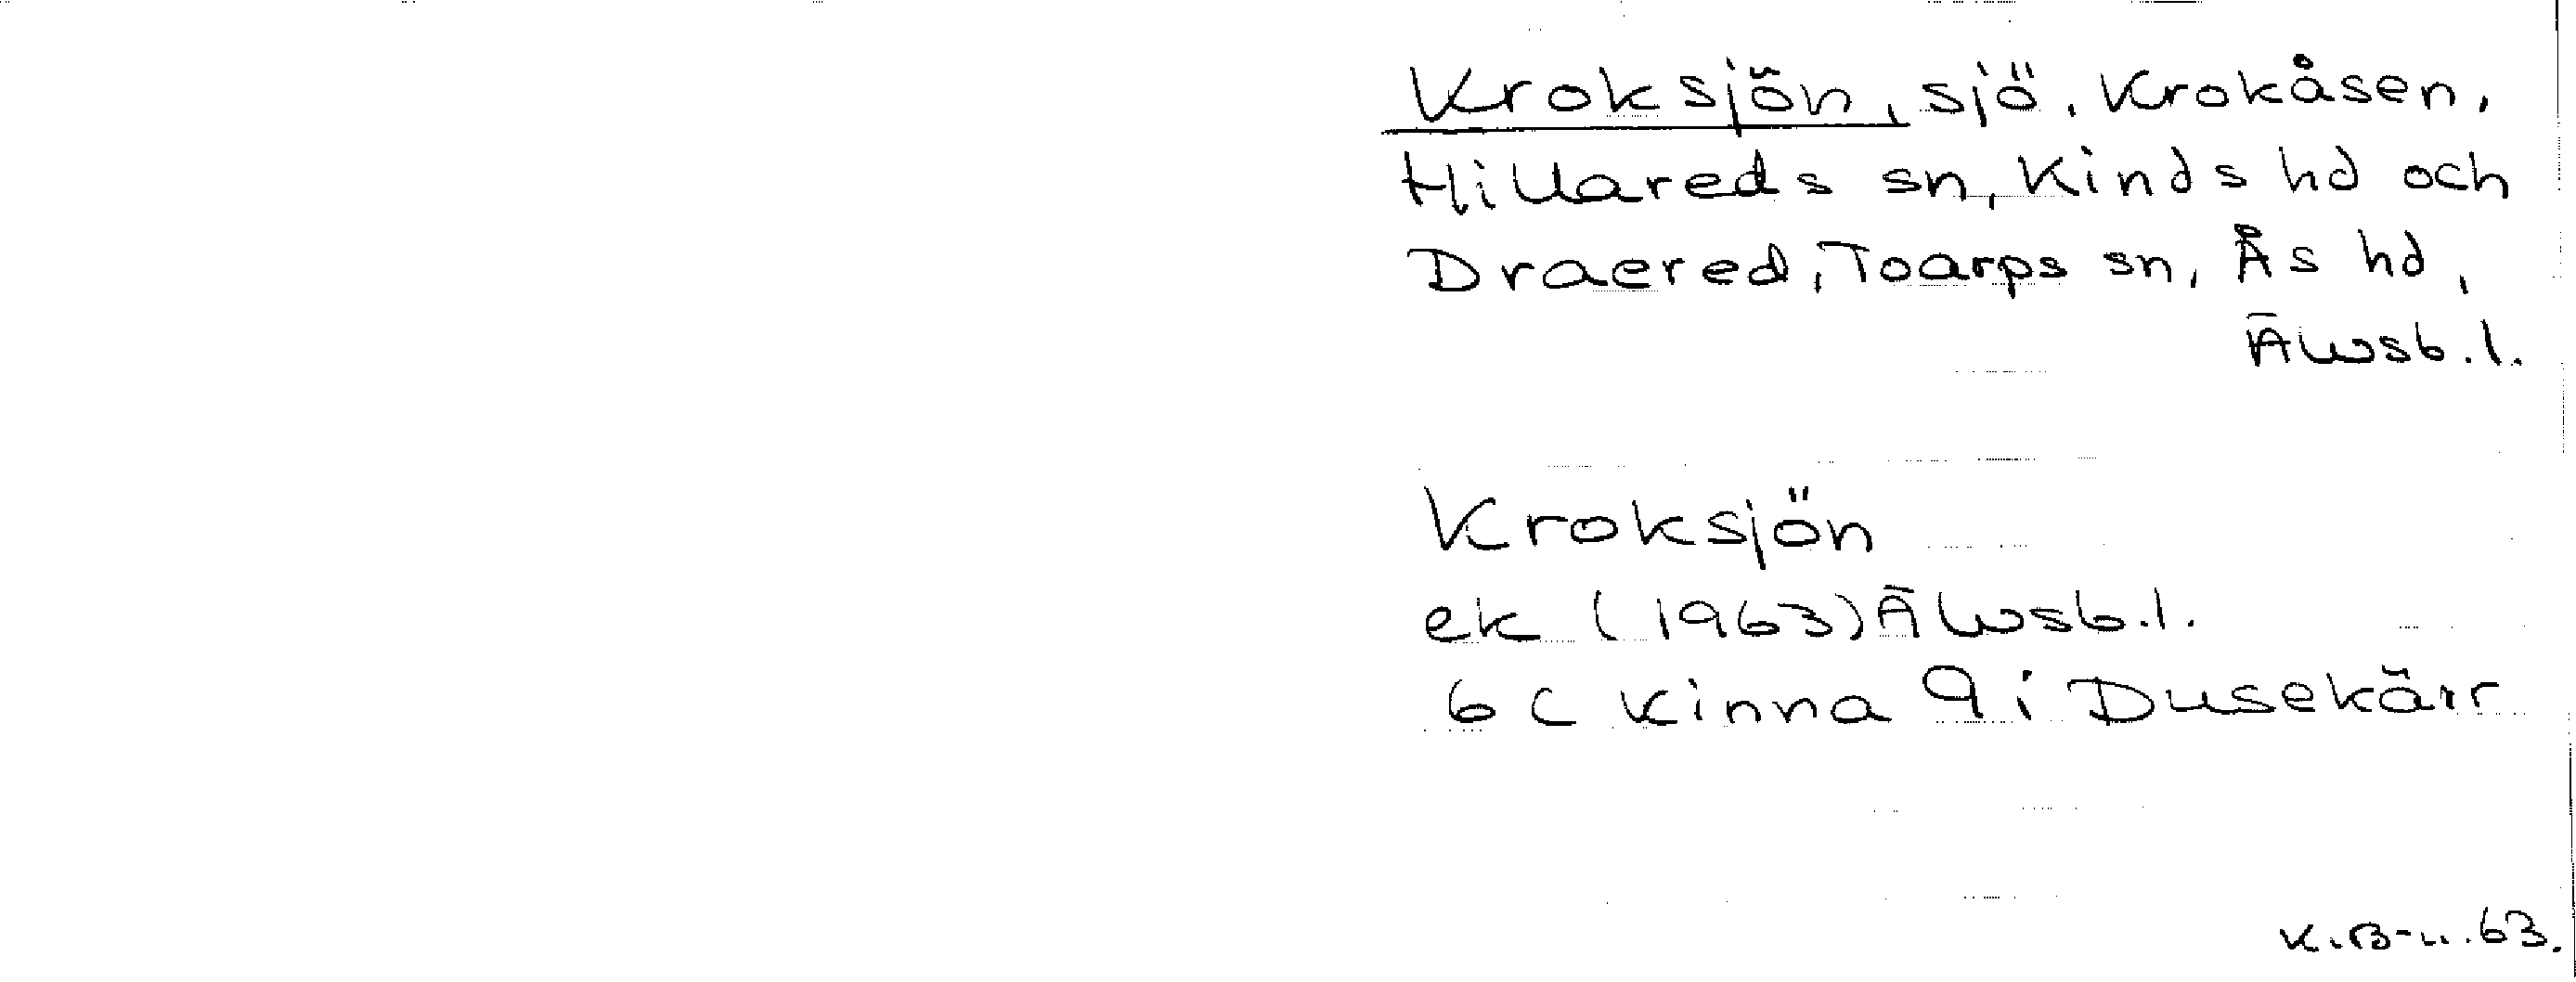 Kroksjön, sjö, Krokåsen,
Hillareds sn, Kinds hd och
Draered, Toarps sn, Ås hd,
Älvsb.l.
Kroksjön
ek (1963) Älvsb.l.
6 C Kinna 9 i Dusekärr
K.B-n.63.